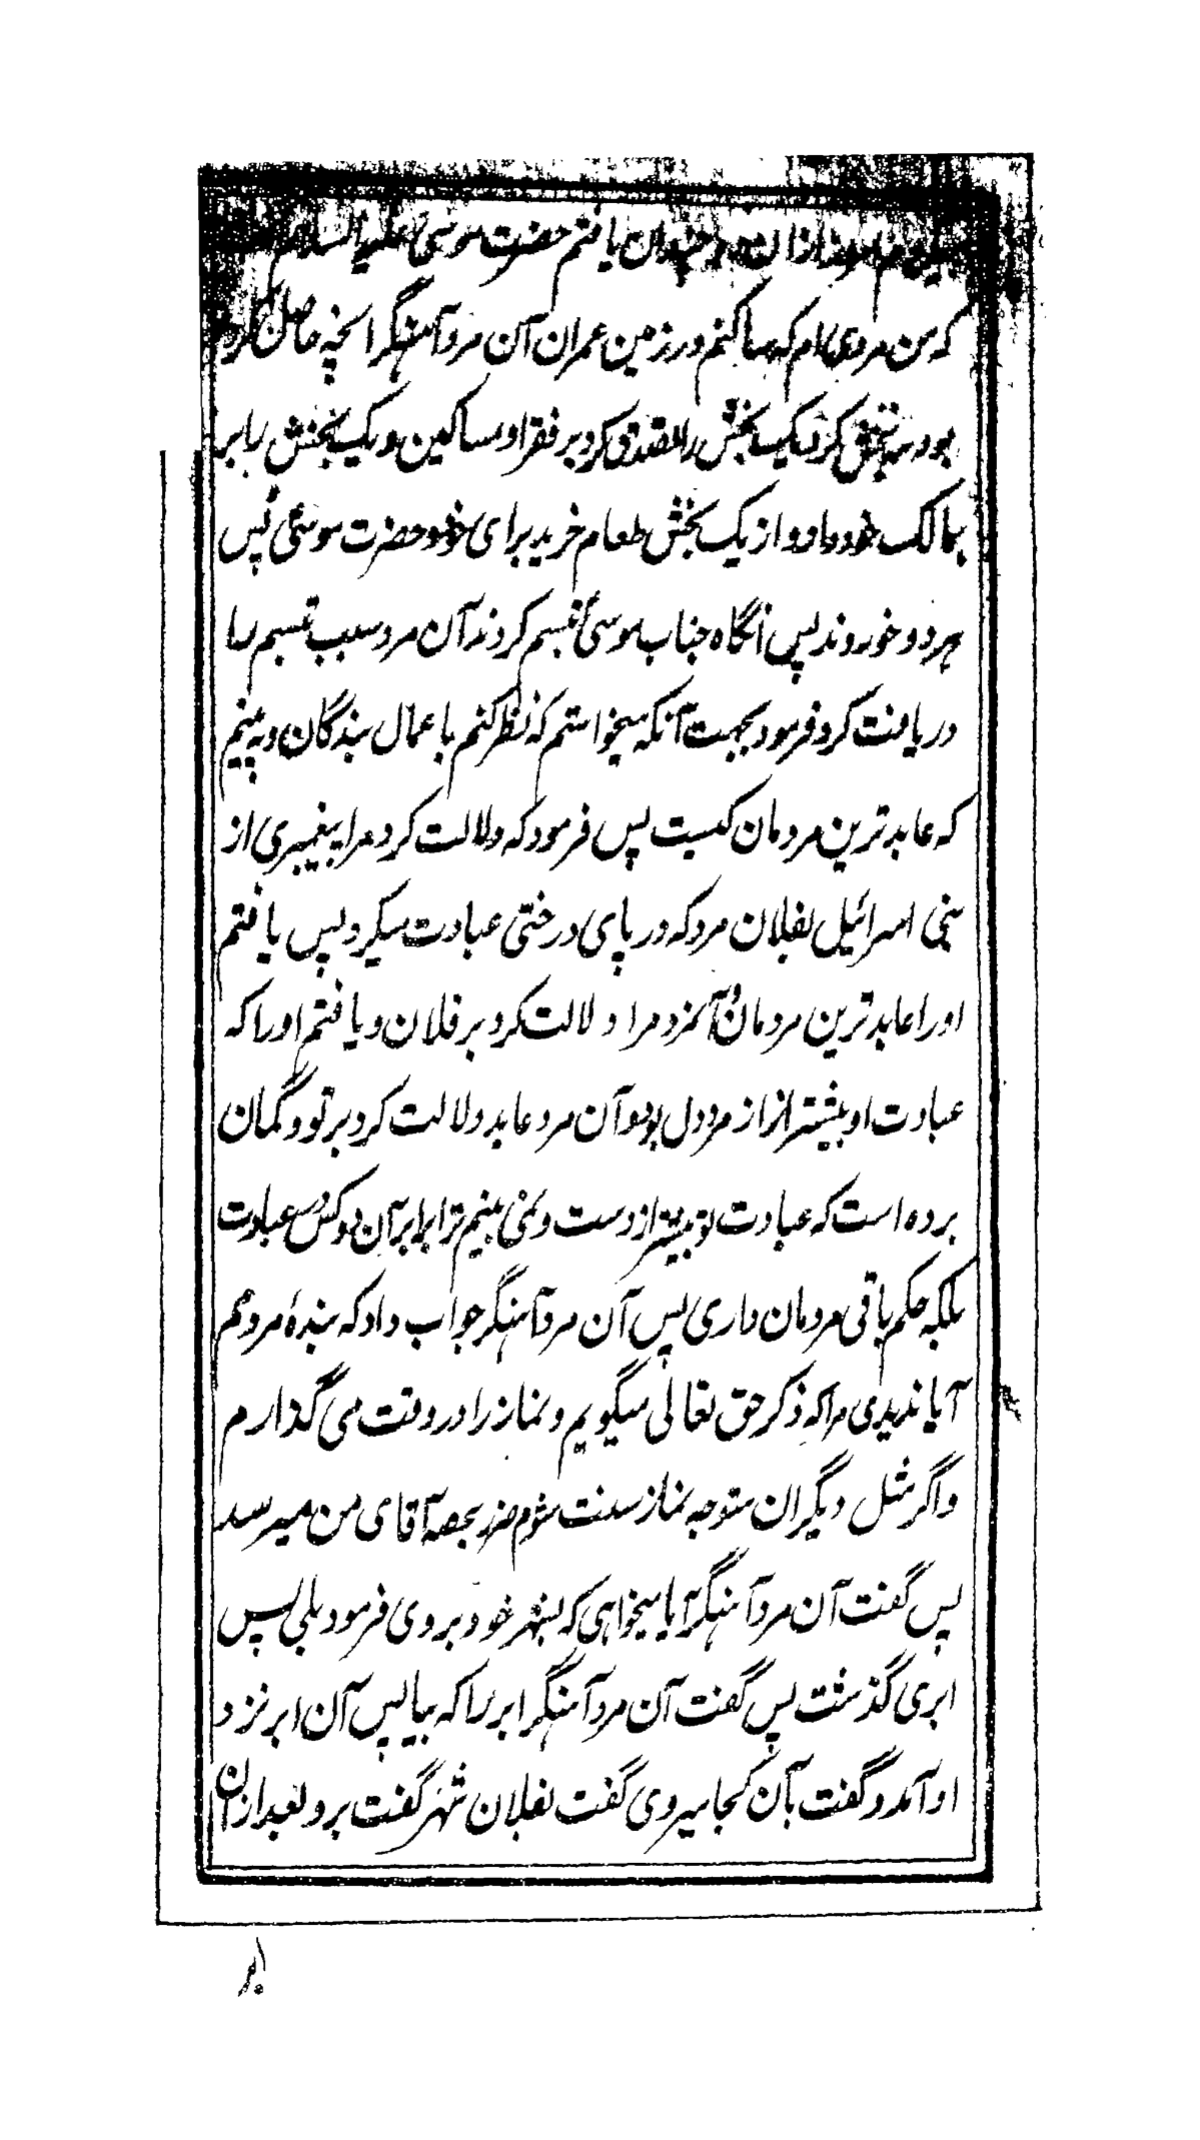 یافتم حضرت موسی علیه السلام
که من مردی ام که ساکنم در زمین عمران آن مرد آهنگر انچه حاصل کرده
بود سه بخش کرد یک بخش را تصدق کرد بر فقرا و مساکین و یک بخش را بر
بمالک خود داد و از یک بخش طعام خرید برای خود و حضرت موسیٰ پس
هر دو خوردند پس آنگاه جناب موسیٰ تبسم کردند آن مرد سبب تبسم را
دریافت کرد فرمود بجهت آنکه میخواستم که نظر کنم باعمال بندگان و به بینم
که عابد ترین مردمان کیست پس فرمود که دلالت کرد مرا پیغمبری از
بنی اسرائیل بفلان مرد که در پای درختی عبادت میکرد پس یافتم
اورا عابد ترین مردمان و آنمرد مرا دلالت کرد بر فلان و یافتم اورا که
عبادت او بیشتر از مرد اول بود و آن مرد عابد دلالت کرد بر تو و گمان
برده است که عبادت تو بیشتر ازوست و نمی بینم ترا برابر آن دو کس در عبادت
بلکه حکم باقی مردمان داری پس آن مرد آهنگر جواب داد که بندهٔ مردمم
آیا ندیدی مرا که ذکر حق تعالی میگویم و نماز را در وقت می گذارم
واگر مثل دیگران متوجه نماز سنت شوم ضرر بحصهٔ آقای من میرسد
پس گفت آن مرد آهنگر آیا میخواهی که بشهر خود بروی فرمود بلی پس
ابری گذشت پس گفت آن مرد آهنگر ابر را که بیا پس آن ابر نزد
او آمد و گفت بآن کجا میروی گفت بفلان شهر گفت برو بعد ازان
ابر